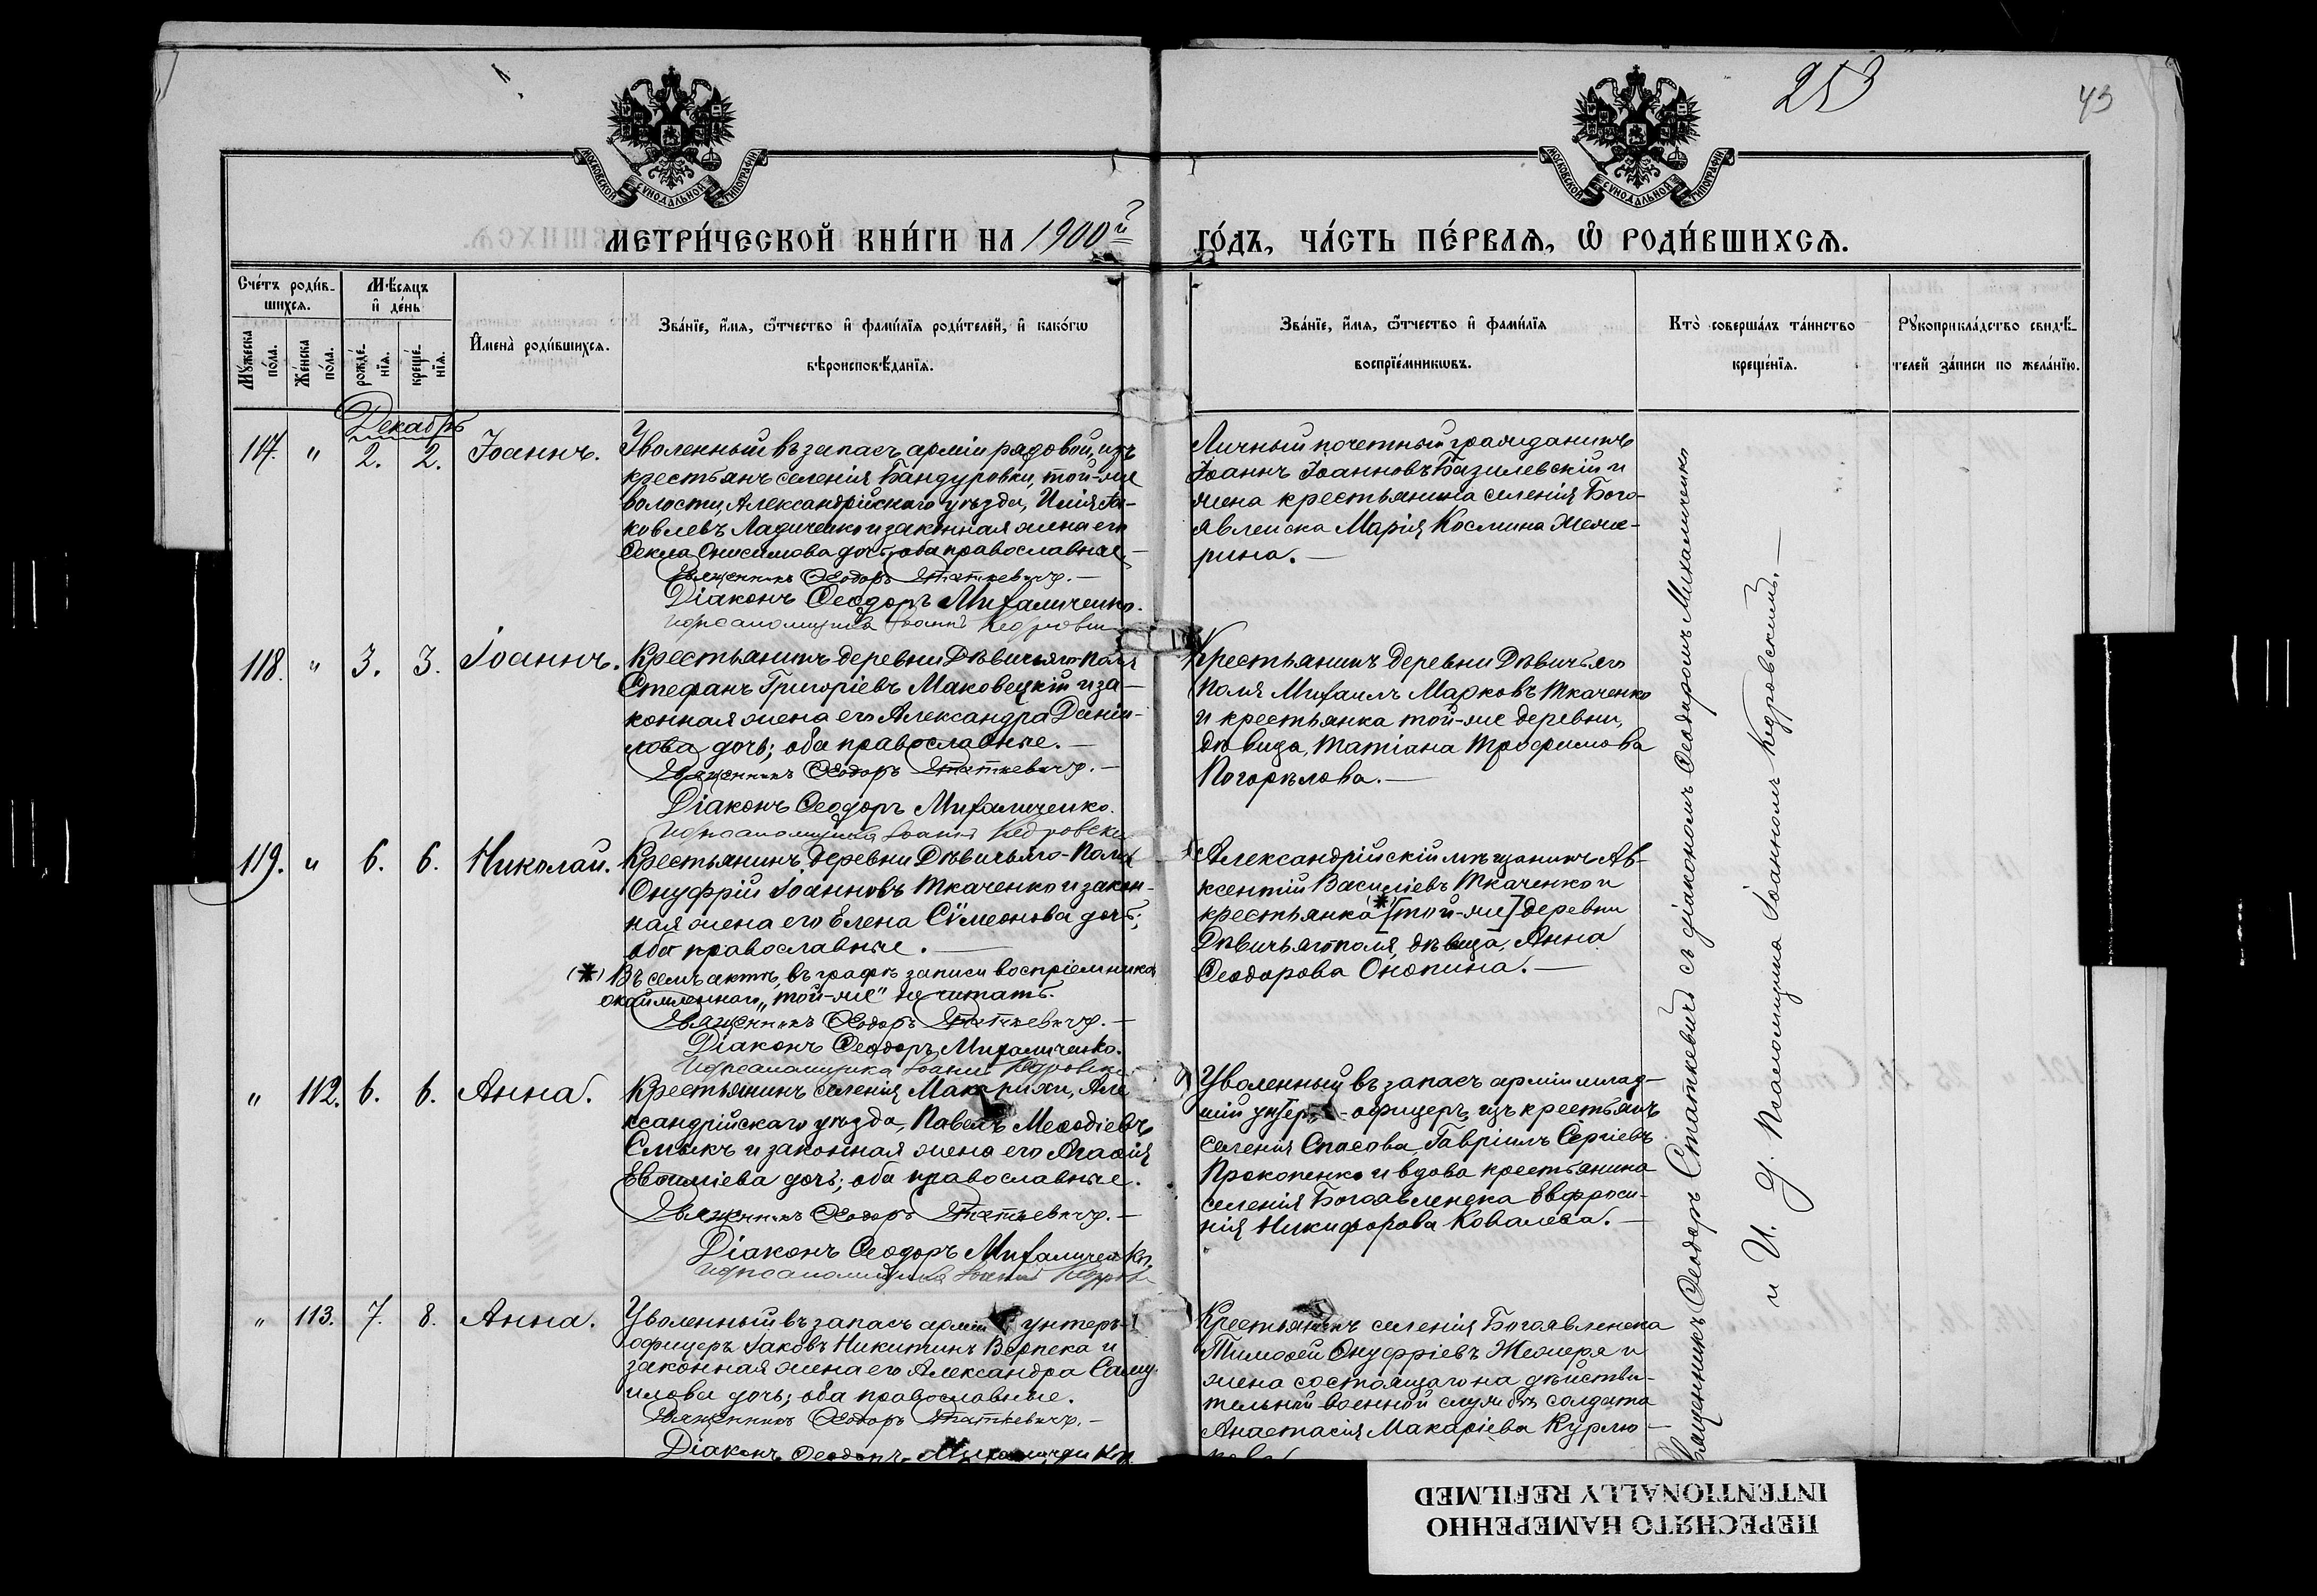 253
43
МОСКОВСКОЙ СУНОДАЛЬНОЙ ТИПОГРАФІИ
МОСКОВСКОЙ СУНОДАЛЬНОЙ ТИПОГРАФІИ
МЕТРИ́ЧЕСКОЙ КНИ́ГИ НА 1900й
ГО́ДЪ, ЧА́СТЬ ПЕ́РВАѦ, Ѡ РОДИ́ВШИХСѦ.
Сче́тъ роди́в-
шихсѧ.
Мѣ́сѧцъ
и҆ де́нь
Мꙋ́жеска по́ла.
Же́нска по́ла.
рожде́-
нїѧ.
креще́-
нїѧ.
И҆мена̀ роди́вшихсѧ.
Зва́нїе, и҆́мѧ, ѻ҆́тчество и҆ фами́лїѧ роди́телей, и҆ како́гѡ
вѣроисповѣ́данїѧ.
Зва́нїе, и҆́мѧ, ѻ҆́тчество и҆ фами́лїѧ
воспрїе́мникѡвъ.
Кто̀ соверша́лъ та́инство
креще́нїѧ.
Рꙋкоприкла́дство свидѣ́-
телей за́писи по жела́нїю.
Декабрь
117. " 2. 2. Іоаннъ.
Уволенный въ запасъ арміи рядовой, изъ
крестьянъ селенія Бандуровки, той-же
волости, Александрійскаго уѣзда, Илія Іа-
ковлевъ Ладиченко и законная жена его
Ѳекла Онисимова дочь; оба православные.—
Священникъ Ѳеодоръ Статкевичъ.—
Діаконъ Ѳеодоръ Михаличенко.
И д псаломщика Іоаннъ Кедровскій
Личный почетный гражданинъ
Іоаннъ Іоанновъ Базилевскій и
жена крестьянина селенія Бого-
явленска Марія Космина Жеже-
рина.—
118. " 3. 3. Іоаннъ.
Крестьянинъ деревни Дѣвичьяго-Поля
Стефанъ Григоріевъ Маковецкій и за-
конная жена его Александра Даніи-
лова дочь; оба православные.—
Священникъ Ѳеодоръ Статкевичъ.—
Діаконъ Ѳеодоръ Михаличенко.
И д псаломщика Іоаннъ Кедровскій
Крестьянинъ деревни Дѣвичьяго
Поля Михаилъ Марковъ Ткаченко
и крестьянка той-же деревни,
дѣвица, Татіана Трофимова
Погорѣлова.—
119. " 6. 6. Николай.
Крестьянинъ деревни Дѣвичьяго-Поля
Онуфрій Іоанновъ Ткаченко и закон-
ная жена его Елена Сѵмеонова дочь;
оба православные.—
(*) Въ семъ актѣ, въ графѣ записи воспріемника
окаймленнаго „той-же" не читать.
Священникъ Ѳеодоръ Статкевичъ.—
Діаконъ Ѳеодоръ Михаличенко.
И д псаломщика Іоаннъ Кедровскій
Александрійскій мѣщанинъ Ав-
ксентій Василіевъ Ткаченко и
крестьянка *[той-же] деревни
Дѣвичьяго поля, дѣвица, Анна
Ѳеодорова Онопина.—
" 112. 6. 6. Анна.
Крестьянинъ селенія Макарихи, Але
ксандрійскаго уѣзда, Павелъ Меѳодіевъ
Смыкъ и законная жена его Агаѳія
Евѳиміева дочь; оба православные.
Священникъ Ѳеодоръ Статкевичъ.—
Діаконъ Ѳеодоръ Михаличенко.
И д псаломщика Іоаннъ Кедровскій
Уволенный въ запасъ арміи млад-
шій унтеръ-офицеръ, изъ крестьянъ
селенія Спасова, Гавріилъ Сергіевъ
Прокопенко и вдова крестьянина
селенія Богоявленска Евфроси-
нія Никифорова Ковалева.—
" 113. 7. 8. Анна.
Уволенный въ запасъ арміи унтеръ-
офицеръ Іаковъ Никитинъ Верпека и
законная жена его Александра Саму-
илова дочь; оба православные.
Священникъ Ѳеодоръ Статкевичъ.—
Діаконъ Ѳеодоръ Михаличенко
Крестьянинъ селенія Богоявленска
Тимоѳей Онуфріевъ Жежеря и
жена состоящаго на дѣйстви-
тельной военной службѣ солдата
Анастасія Макаріева Курлю-
кова
Священникъ Ѳеодоръ Статкевичъ съ діакономъ Ѳеодоромъ Михаличенко
и И. д. Псаломщика Іоанномъ Кедровскимъ.—
ПЕРЕСНЯТО НАМЕРЕННО
INTENTIONALLY REFILMED